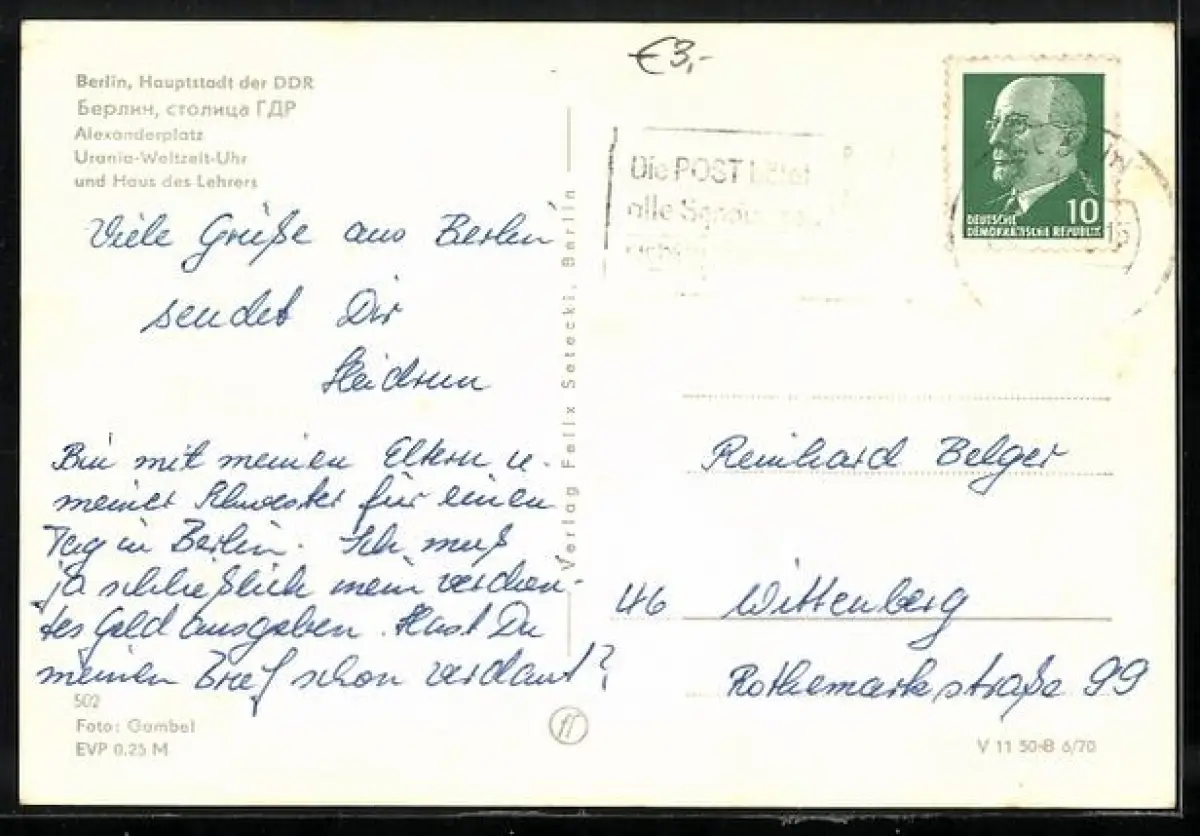 Berlin, Hauptstadt der DDR
Берлин, столица ГДР
Alexanderplatz
Urania-Weltzeit-Uhr
und Haus des Lehrers
Viele Grüße aus Berlin
sendet Dir
Heidrun
Bin mit meinen Eltern u.
meiner Schwester für einen
Tag in Berlin. Ich muß
ja schließlich mein verdien-
tes Geld ausgeben. Hast Du
meinen Brief schon verdaut?
502
Foto: Gambel
EVP 0.25 M
Verlag Felix Setecki, Berlin
€3,-
Die POST
alle
10
DEUTSCHE
DEMOKRATISCHE REPUBLIK
Reinhard Belger
46 Wittenberg
Rothemarkstraße 99
V 11 50-B 6/70